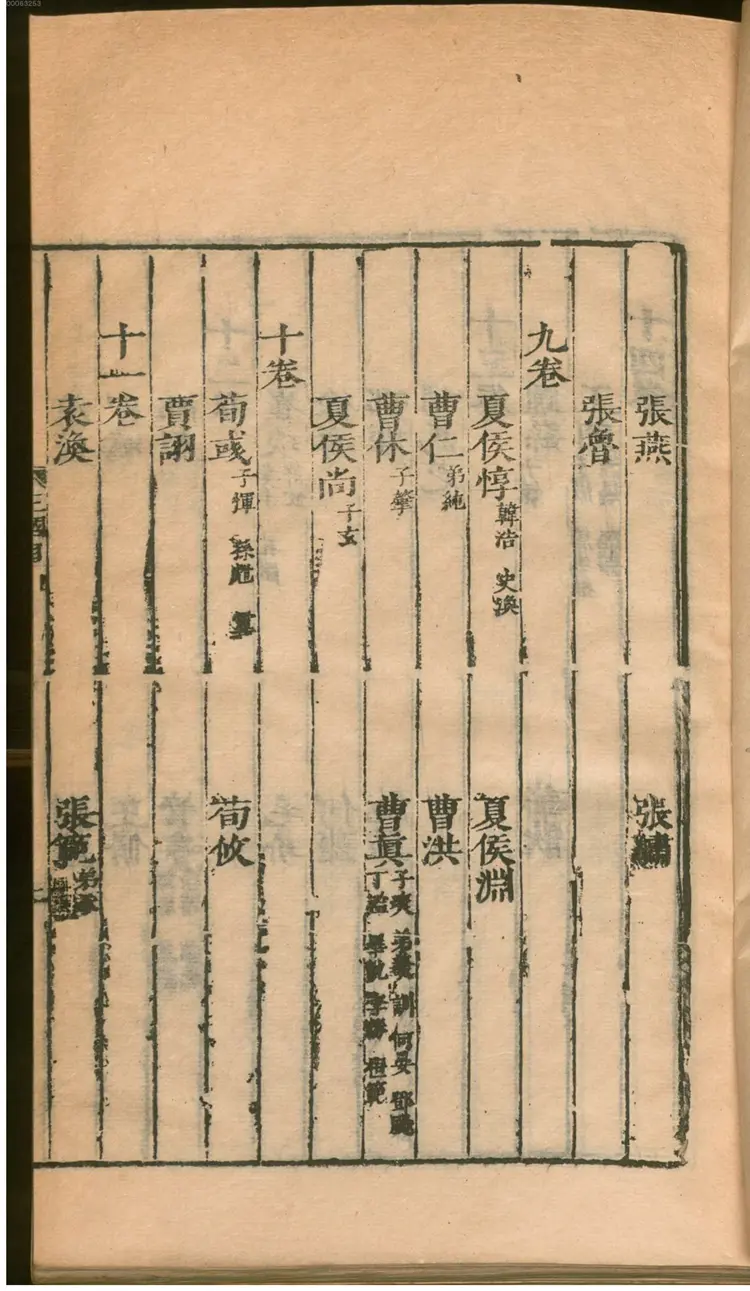 00063253
張燕 張繡
張魯
九卷
夏侯惇 韓浩 史渙 夏侯淵
曹仁 弟純 曹洪
曹休 子肇 曹眞 子爽 弟羲 訓 何晏 鄧颺 丁謐 畢軌 李勝 桓範
夏侯尚 子玄
十卷
荀彧 子惲 孫甝 荀攸
賈詡
十一卷
袁渙 張範 弟承
三國目